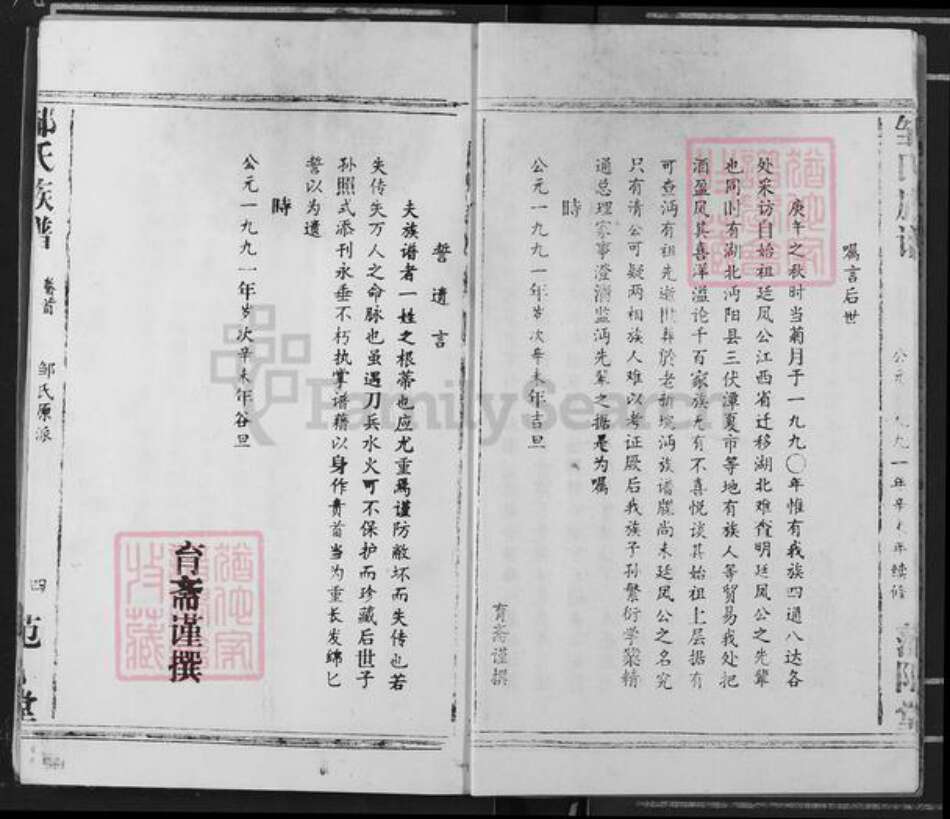 嘱言后世
庚午之秋时当菊月于一九九〇年惟有我族四通八达各
处采访自始祖廷凤公江西省迁移湖北难查明廷凤公之先辈
也同时有湖北沔阳县三伏潭夏市等地有族人等贸易我处把
酒盈风其喜洋溢论千百家族尤有不喜悦谈其始祖上层据有
可查沔有祖先逝世葬於老新垸沔族谱牒尚未廷凤公之名究
只有清公可疑两相族人难以考证厥后我族子孙繁衍学业精
通总理家事澄清监沔先辈之据是为嘱
時
公元一九九一年岁次辛未年吉旦
育斋谨撰
公元一九九一年辛未年续修
誓遗言
夫族谱者一姓之根蒂也应尤重焉谨防敝坏而失传也若
失传失万人之命脉也虽遇刀兵水火可不保护而珍藏后世子
孙照式添刊永垂不朽执掌谱籍以身作责首当为重长发绵匕
誓以为遗
時
公元一九九一年岁次辛未年谷旦
育斋谨撰
邹氏族谱
卷首
邹氏原派
四
FamilySearch